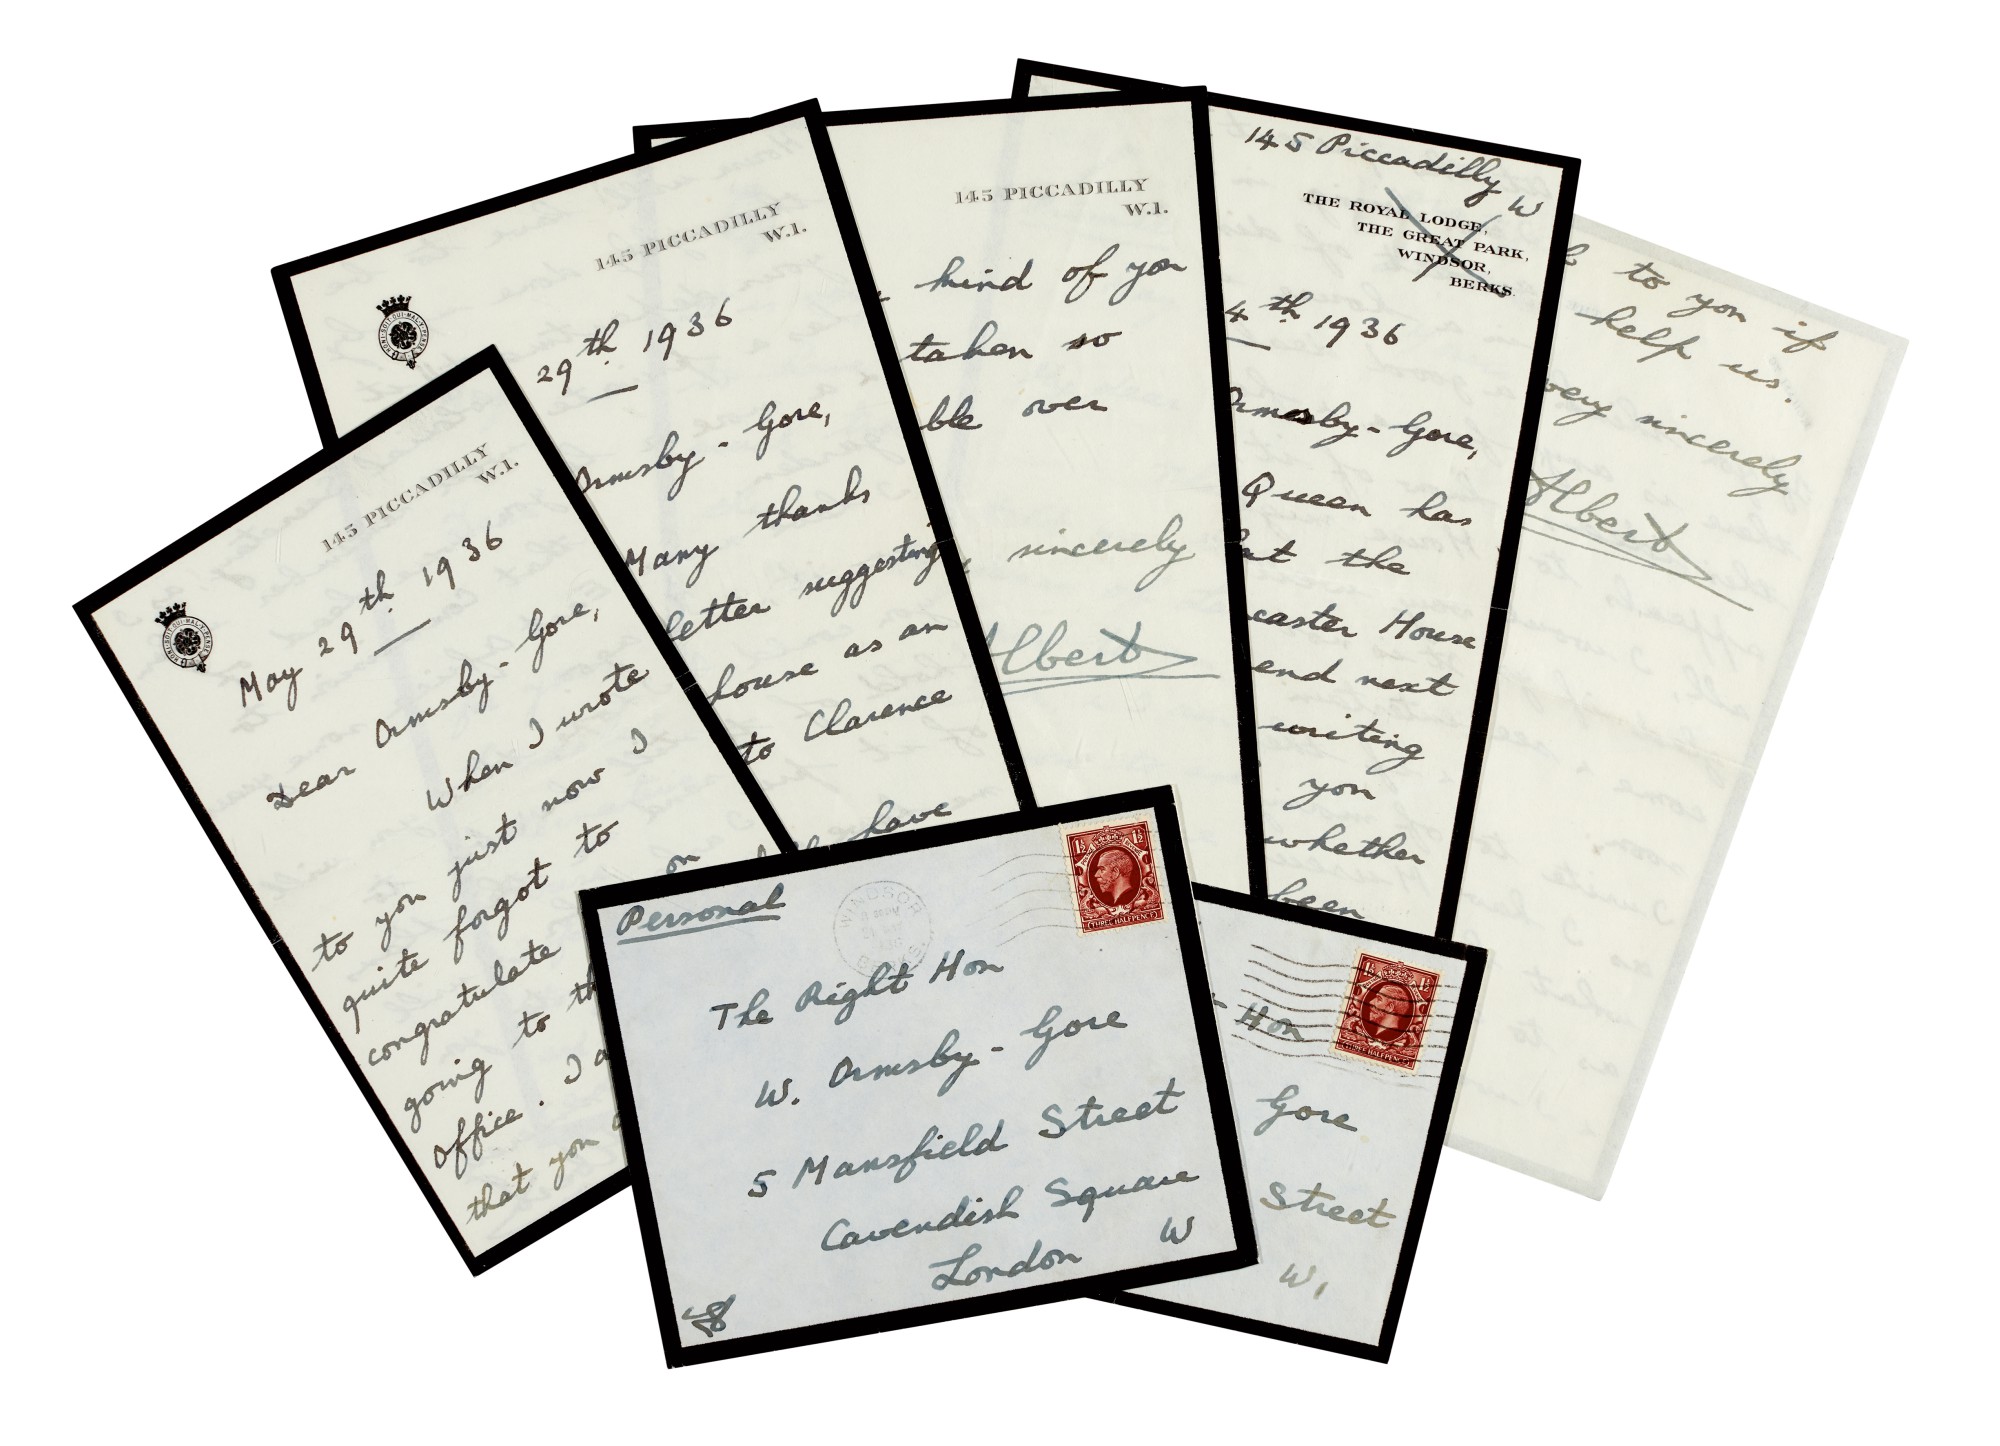 145 PICCADILLY
W.1.
HONI·SOIT·QUI·MAL·Y·PENSE
May 29th 1936
Dear Ormsby-Gore,
When I wrote
to you just now I
quite forgot to
congratulate
going to
Office. I
that you
145 PICCADILLY
W.1.
HONI·SOIT·QUI·MAL·Y·PENSE
29th 1936
Ormsby-Gore,
Many thanks
letter suggesting
house as an
to Clarence
have
on
145 PICCADILLY
W.1.
kind of you
taken so
ble over
sincerely
Albert
145 Piccadilly
W
THE ROYAL LODGE,
THE GREAT PARK,
WINDSOR,
BERKS.
4th 1936
Ormsby-Gore,
Queen has
at the
caster House
end next
writing
you
whether
been
to you if
help us.
very sincerely
Albert
Personal
WINDSOR
BERKS.
1½ 1½
THREE HALFPENCE
The Right Hon
W. Ormsby-Gore
5 Mansfield Street
Cavendish Square
London W
1½ 1½
THREE HALFPENCE
Hon
Gore
Street
W1